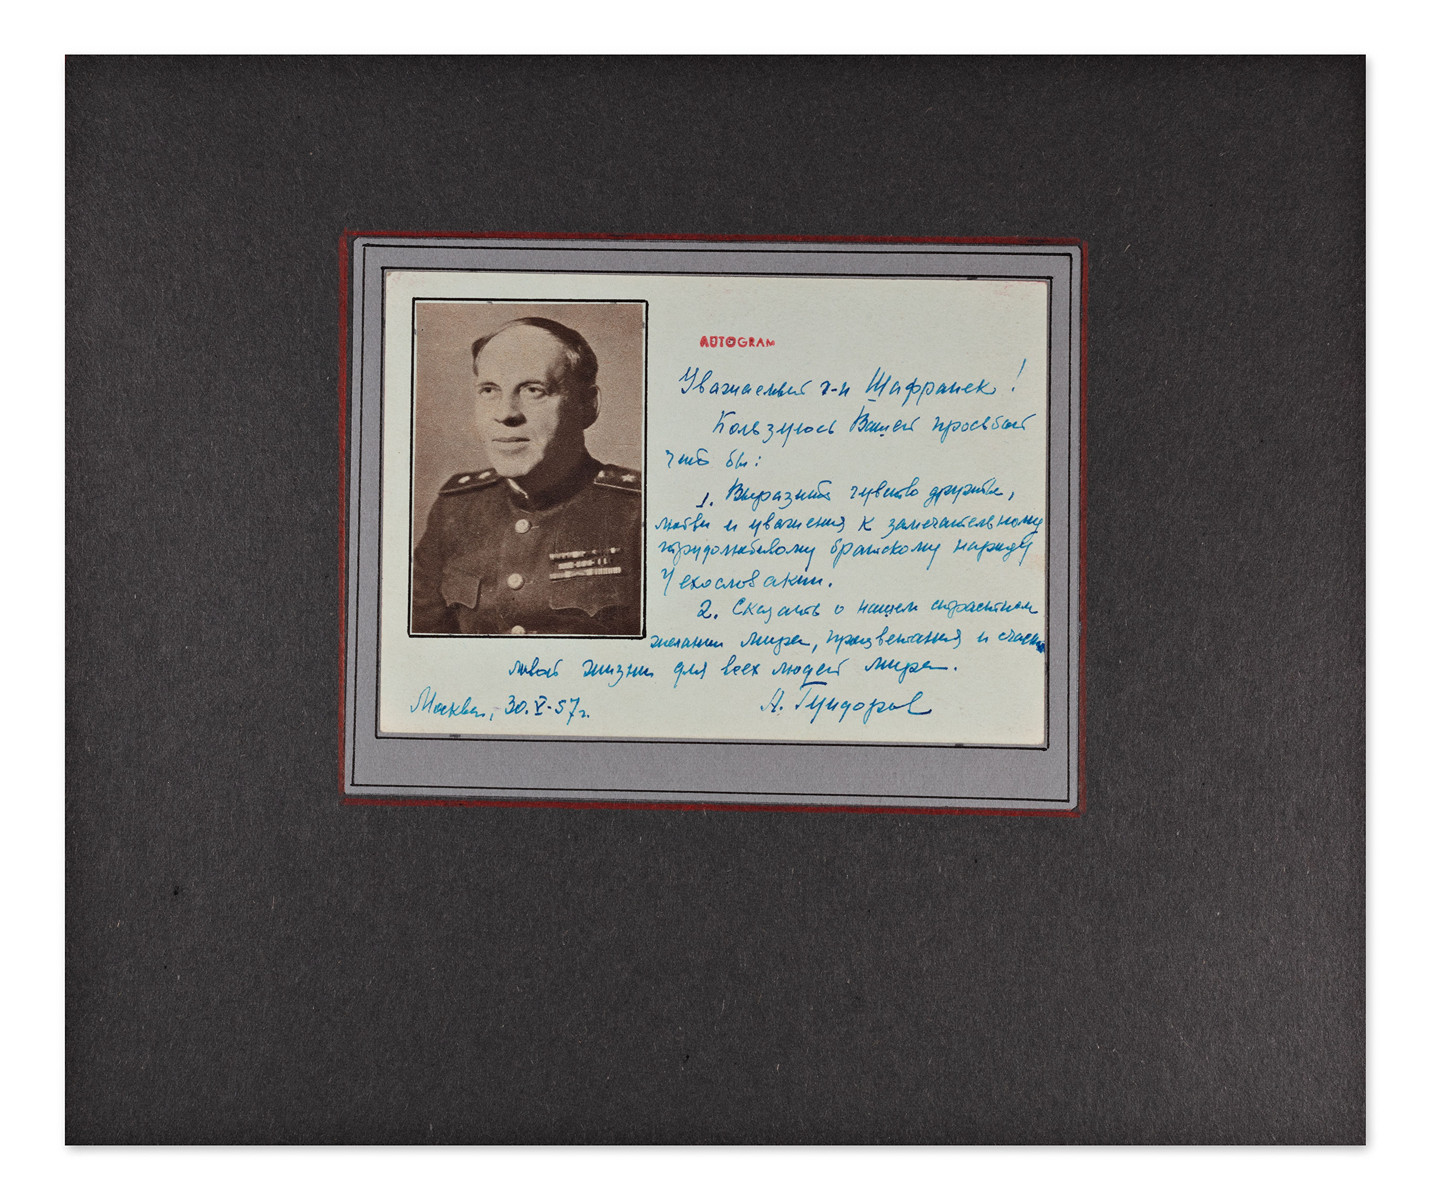 AUTOGRAM
Уважаемый г-н Шафранек!
Пользуюсь Вашей просьбой
что бы:
1. Выразить чувство дружбы,
любви и уважения к замечательному
трудолюбивому братскому народу
Чехословакии.
2. Сказать о нашем страстном
желании мира, процветания и счаст
ливой жизни для всех людей мира.
Москва, 30.V-57г. А. Гундоров